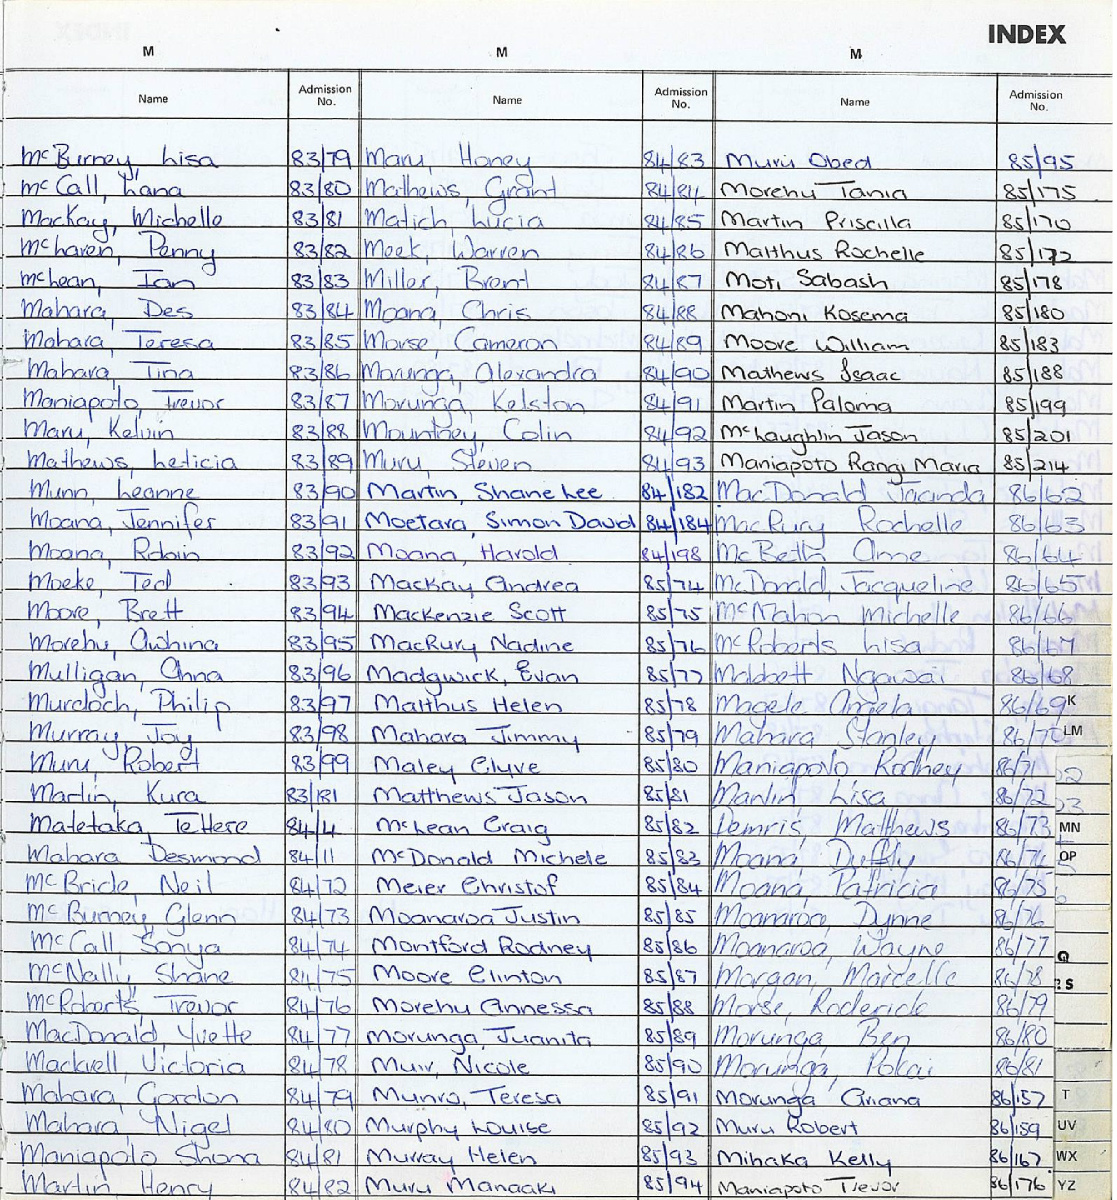 INDEX
M M M
Name Admission No. Name Admission No. Name Admission No.
McBurney, Lisa 83/79 Maru, Honey 84/83 Muru Obed 85/95
McCall, Lana 83/80 Mathews, Grant 84/84 Morehu Tania 85/175
MacKay, Michelle 83/81 Matich, Lucia 84/85 Martin Priscilla 85/170
McLaren, Penny 83/82 Meek, Warren 84/86 Malthus Rochelle 85/172
McLean, Ian 83/83 Miller, Brent 84/87 Moti Sabash 85/178
Mahara, Des 83/84 Moana, Chris 84/88 Mahoni Kosema 85/180
Mahara, Teresa 83/85 Morse, Cameron 84/89 Moore William 85/183
Mahara, Tina 83/86 Morunga, Alexandra 84/90 Mathews Isaac 85/188
Maniapoto, Trevor 83/87 Morunga, Kelston 84/91 Martin Paloma 85/199
Maru, Kelvin 83/88 Mountney, Colin 84/92 McLaughlin Jason 85/201
Mathews, Leticia 83/89 Muru, Steven 84/93 Maniapoto Rangi Maria 85/214
Munn, Leanne 83/90 Martin, Shane Lee 84/182 MacDonald 86/62
Moana, Jennifer 83/91 Moetara, Simon David 84/184 MacRury Rochelle 86/63
Moana, Robin 83/92 Moana, Harold 84/198 McBeth Anne 86/64
Moeke, Ted 83/93 MacKay Andrea 85/74 McDonald, Jacqueline 86/65
Moore, Brett 83/94 MacKenzie Scott 85/75 McMahon Michelle 86/66
Morehu, Awhina 83/95 MacRury Nadine 85/76 McRoberts Lisa 86/67
Mulligan, Anna 83/96 Madgwick, Evan 85/77 Mabbett Ngawai 86/68
Murdoch, Philip 83/97 Malthus Helen 85/78 Magele Angela 86/69 K
Murray Joy 83/98 Mahara Jimmy 85/79 Mahara Stanley 86/70 LM
Muru, Robert 83/99 Maley Clyve 85/80 Maniapoto Rodney 86/71
Martin, Kura 83/181 Matthews Jason 85/81 Martin Lisa 86/72
Matetaka, TeHere 84/4 McLean Craig 85/82 Demris Matthews 86/73 MN
Mahara Desmond 84/11 McDonald Michele 85/83 Moana Duffy 86/74 OP
McBride, Neil 84/72 Meier Christof 85/84 Moana, Patricia 86/75
McBurney Glenn 84/73 Moanaroa Justin 85/85 Moanaroa, Dynne 86/76
McCall, Sonya 84/74 Montford Rodney 85/86 Moanaroa, Wayne 86/77 Q
McNally, Shane 84/75 Moore Clinton 85/87 Morgan, Marcelle 86/78 S
McRoberts, Trevor 84/76 Morehu Annessa 85/88 Morse, Roderick 86/79
MacDonald, Yvette 84/77 Morunga, Juanita 85/89 Morunga, Ben 86/80
Mackvell, Victoria 84/78 Muir, Nicole 85/90 Morunga, Pokai 86/81
Mahara, Gordon 84/79 Munro, Teresa 85/91 Morunga Ariana 86/157 T
Mahara Nigel 84/80 Murphy Louise 85/92 Muru Robert 86/159 UV
Maniapoto Shona 84/81 Murray Helen 85/93 Mihaka Kelly 86/167 WX
Martin Henry 84/82 Muru Manaaki 85/94 Maniapoto Trevor 86/176 YZ